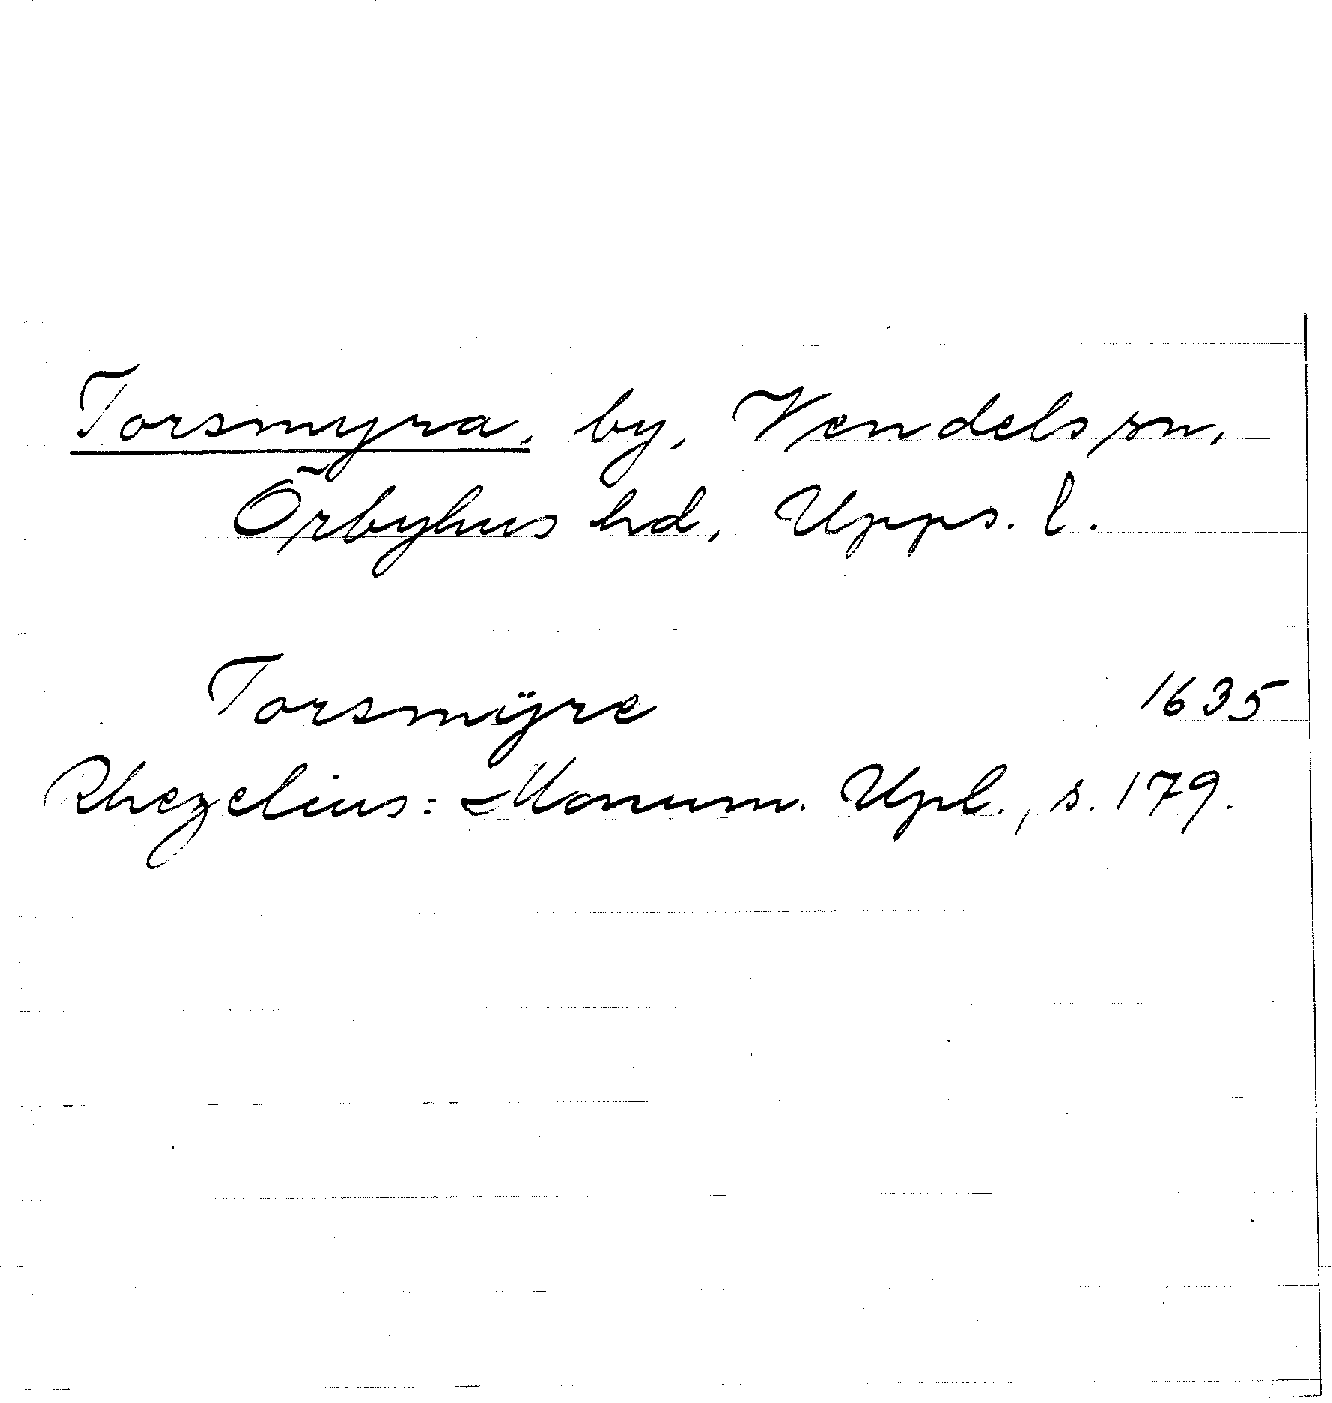 Torsmyra, by, Vendels sn,
Örbyhus hd, Upps. l.
Torsmÿre 1635
Rhezelius: Monum. Upl., s. 179.